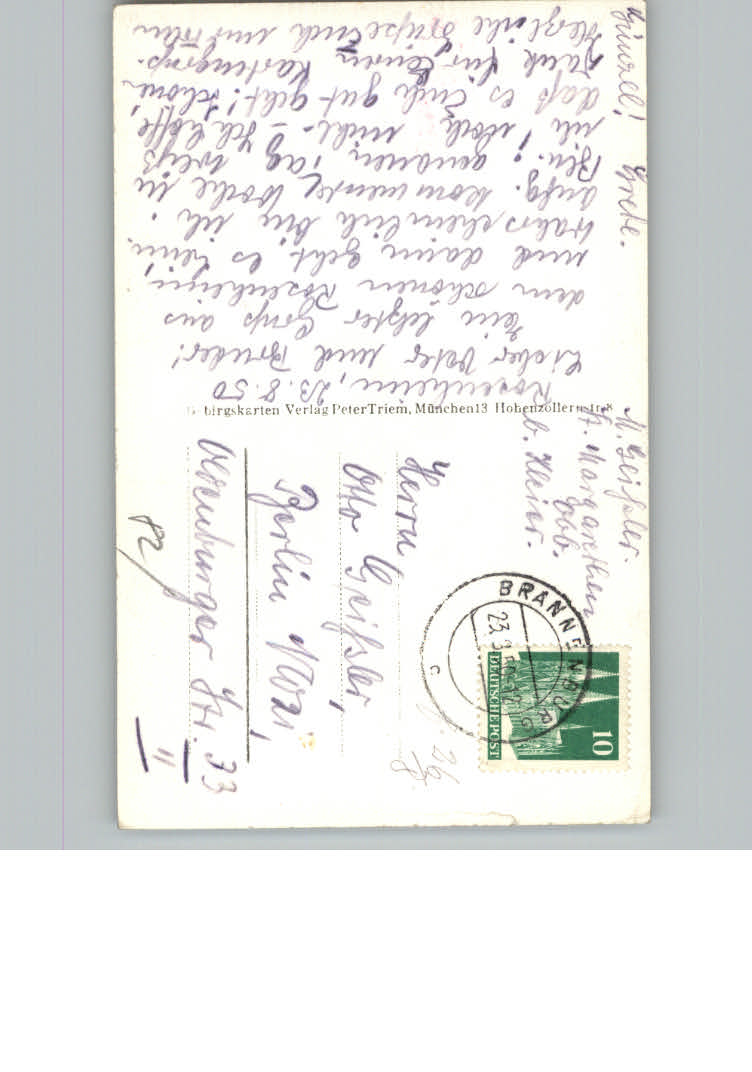 Rosenheim, 23.8.50
Lieber Vater und Bruder!
Ein letzter Gruß aus
dem schönen Rosenheim,
und dann geht es heim.
Wahrscheinlich bin ich
anfg. kommende Woche in
Bln. genauen Tag weiß
ich noch nicht. Ich hoffe,
daß es Euch gut geht! Schönen
Dank für Euren Kartengruß.
Herzliche Grüße Euch und
Grete.
M. Geißler.
St. Margarethen
Obb.
b. Heier.
Gebirgskarten Verlag Peter Triem, München 13 Hohenzollernstr. 8
Herrn
Otto Geißler,
Berlin N021,
Oldenburger Str. 33
II
BRANNENBURG
23.8.50
DEUTSCHE POST
10